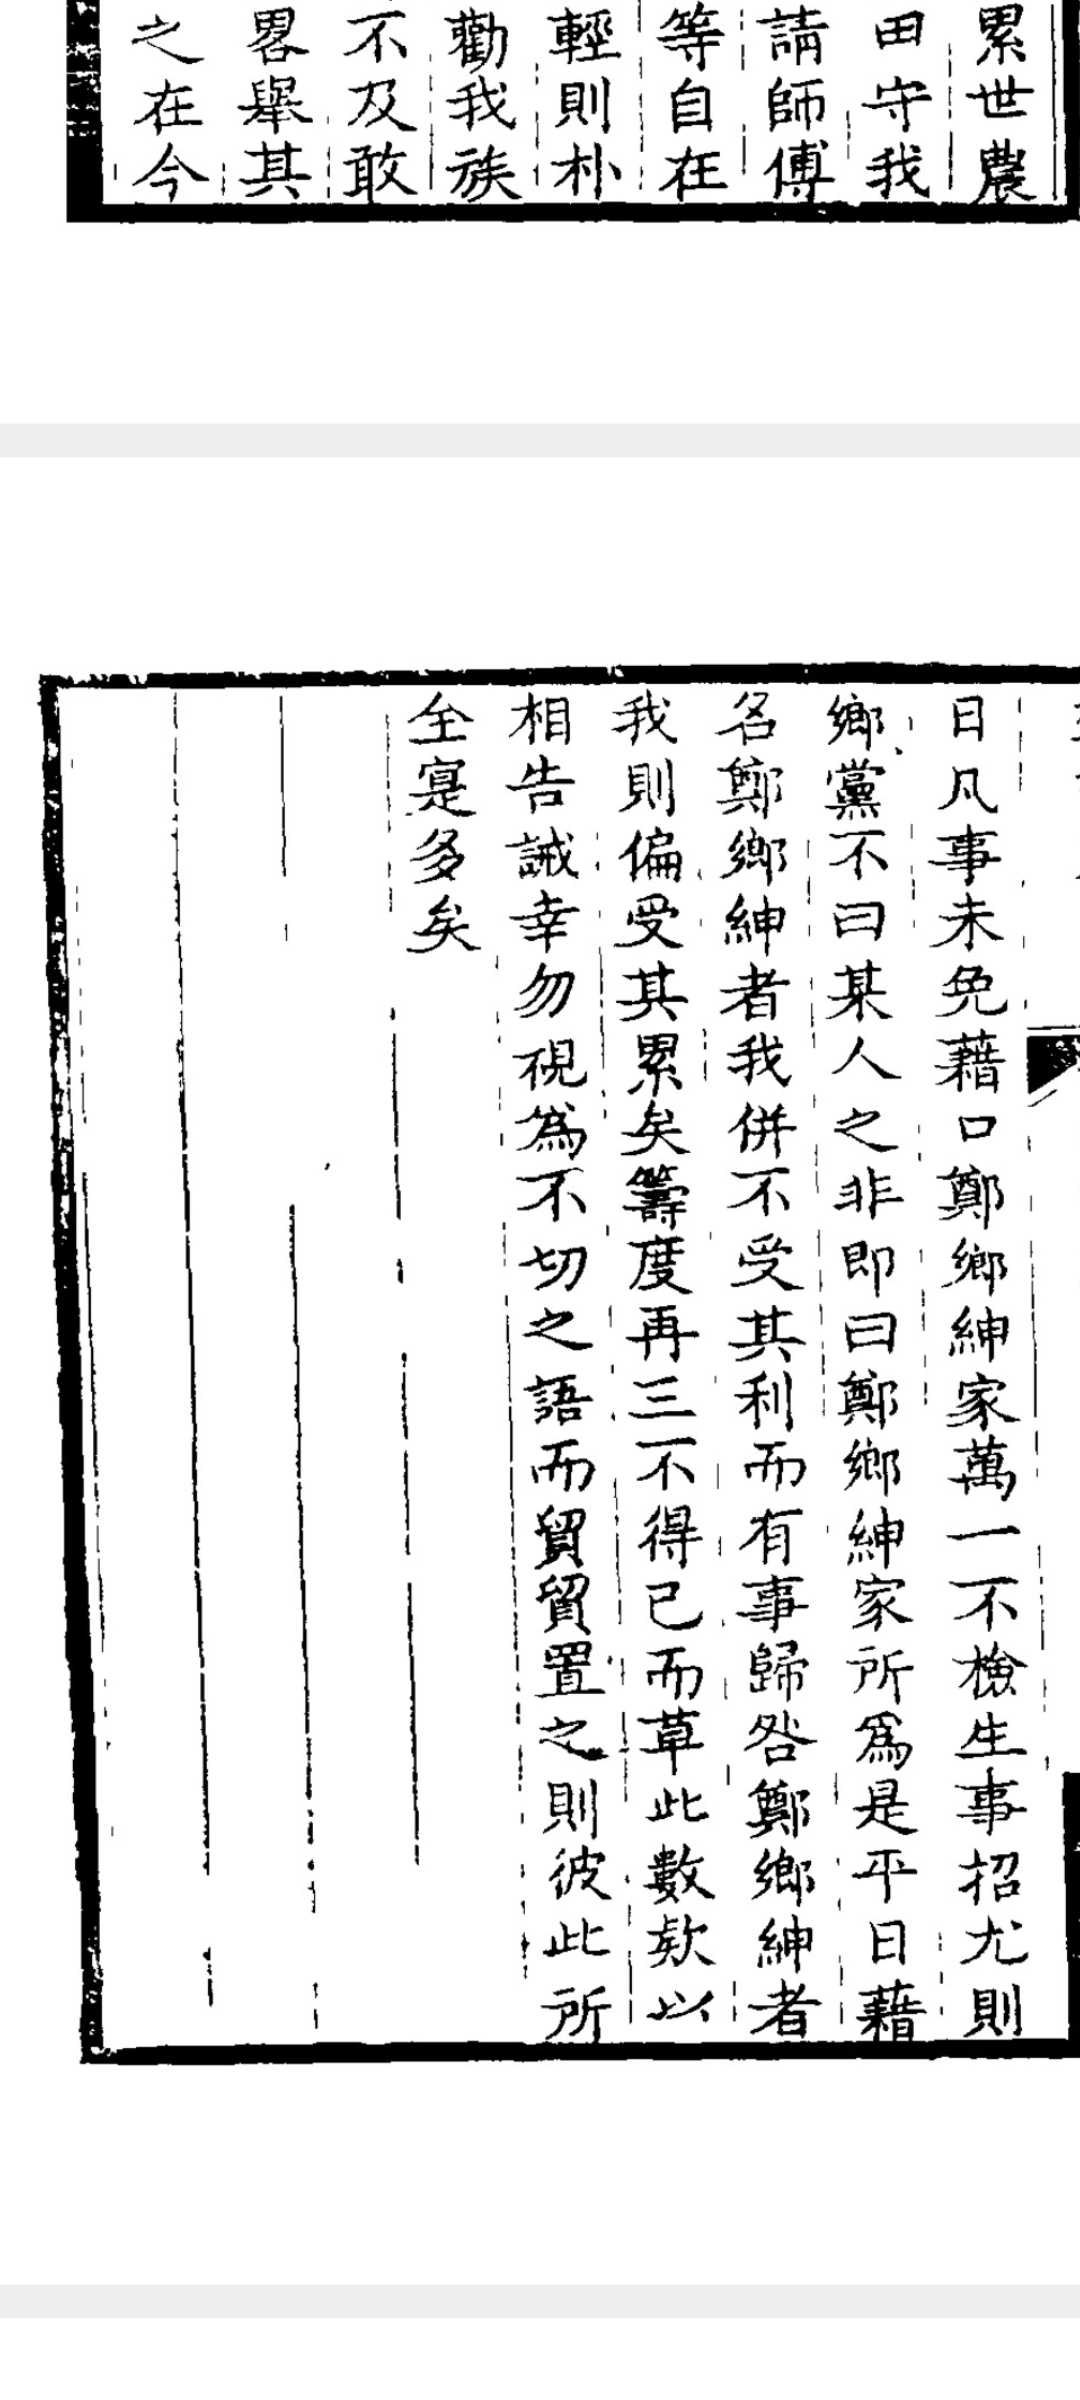 累世農
田守我
請師傅
等自在
輕則朴
勸我族
不及敢
畧舉其
之在今
日凡事未免藉口鄭鄉紳家萬一不檢生事招尤則
鄉黨不曰某人之非即曰鄭鄉紳家所爲是平日藉
名鄭鄉紳者我併不受其利而有事歸咎鄭鄉紳者
我則偏受其累矣籌度再三不得已而草此數欵以
相告誡幸勿視爲不切之語而貿貿置之則彼此所
全寔多矣